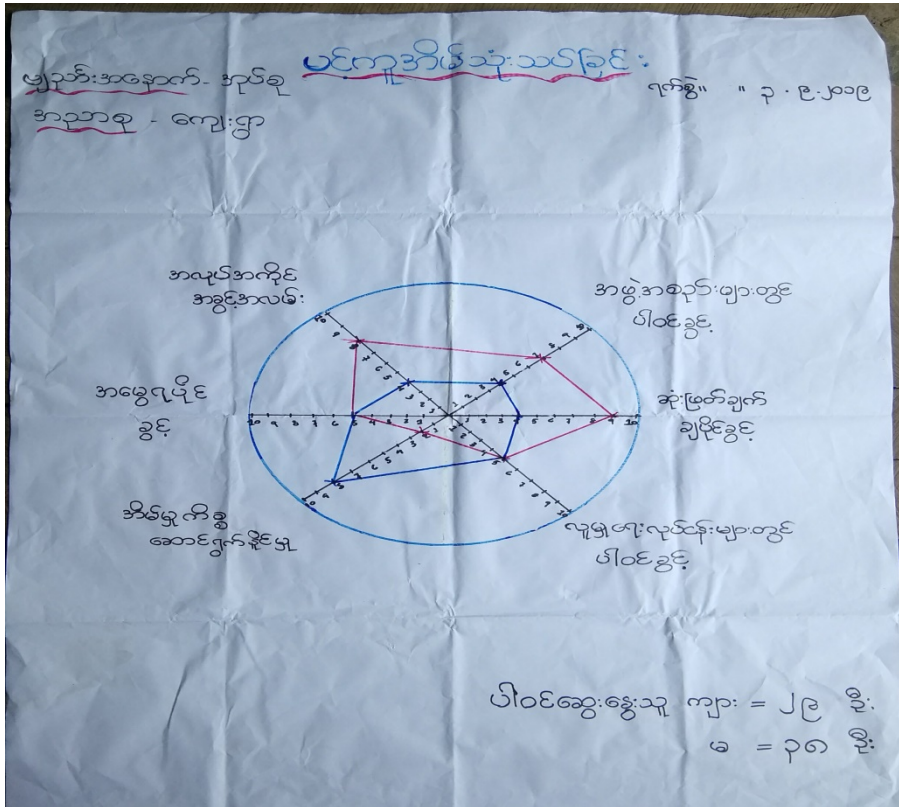 ပင်ကူအိမ်သုံးသပ်ခြင်း
အနောက် - အုပ်စု
ရက်စွဲ။ ။ ၃.၉.၂၀၁၉
အညာစု - ကျေးရွာ
အလုပ်အကိုင်
အခွင့်အလမ်း
အဖွဲ့အစည်းများတွင်
ပါဝင်ခွင့်
အမွေရပိုင်
ခွင့်
ဆုံးဖြတ်ချက်
ချပိုင်ခွင့်
အိမ်မှုကိစ္စ
ဆောင်ရွက်နိုင်မှု
လူမှုရေးလုပ်ငန်းများတွင်
ပါဝင်ခွင့်
ပါဝင်ဆွေးနွေးသူ ကျား = ၂၉ ဦး
မ = ၃၈ ဦး